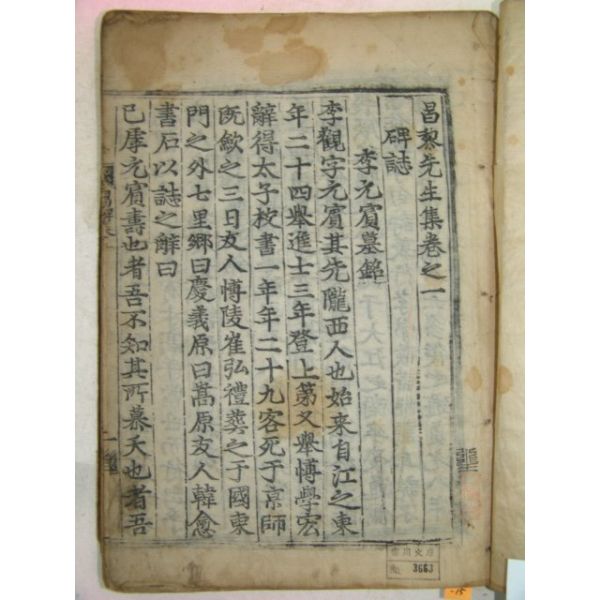 昌黎先生集卷之一
碑誌
李元賓墓銘
李觀字元賓其先隴西人也始来自江之東
年二十四舉進士三年登上第又舉博學宏
辭得太子校書一年年二十九客死于京師
既歛之三日友人博陵崔弘禮葬之于國東
門之外七里鄉曰慶義原曰嵩原友人韓愈
書石以誌之辭曰
已虖元賓壽也者吾不知其所慕夭也者吾
3663
-15